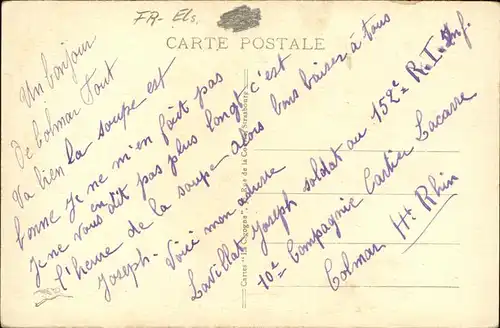 FR- Els.
CARTE POSTALE
Un bonjour
De Colmar Tout
Va bien la soupe est
bonne Je ne m'en fait pas
Je ne vous en dit pas plus longt c'est
l'heure de la soupe alors bons baiser à tous
Joseph. Voici mon adresse
Lavillat Joseph soldat au 152e R.I. Inf.
10e Compagnie Cartier Lacarre
Colmar Ht Rhin
Cartes "La Cigogne" Rue de la Strasbourg